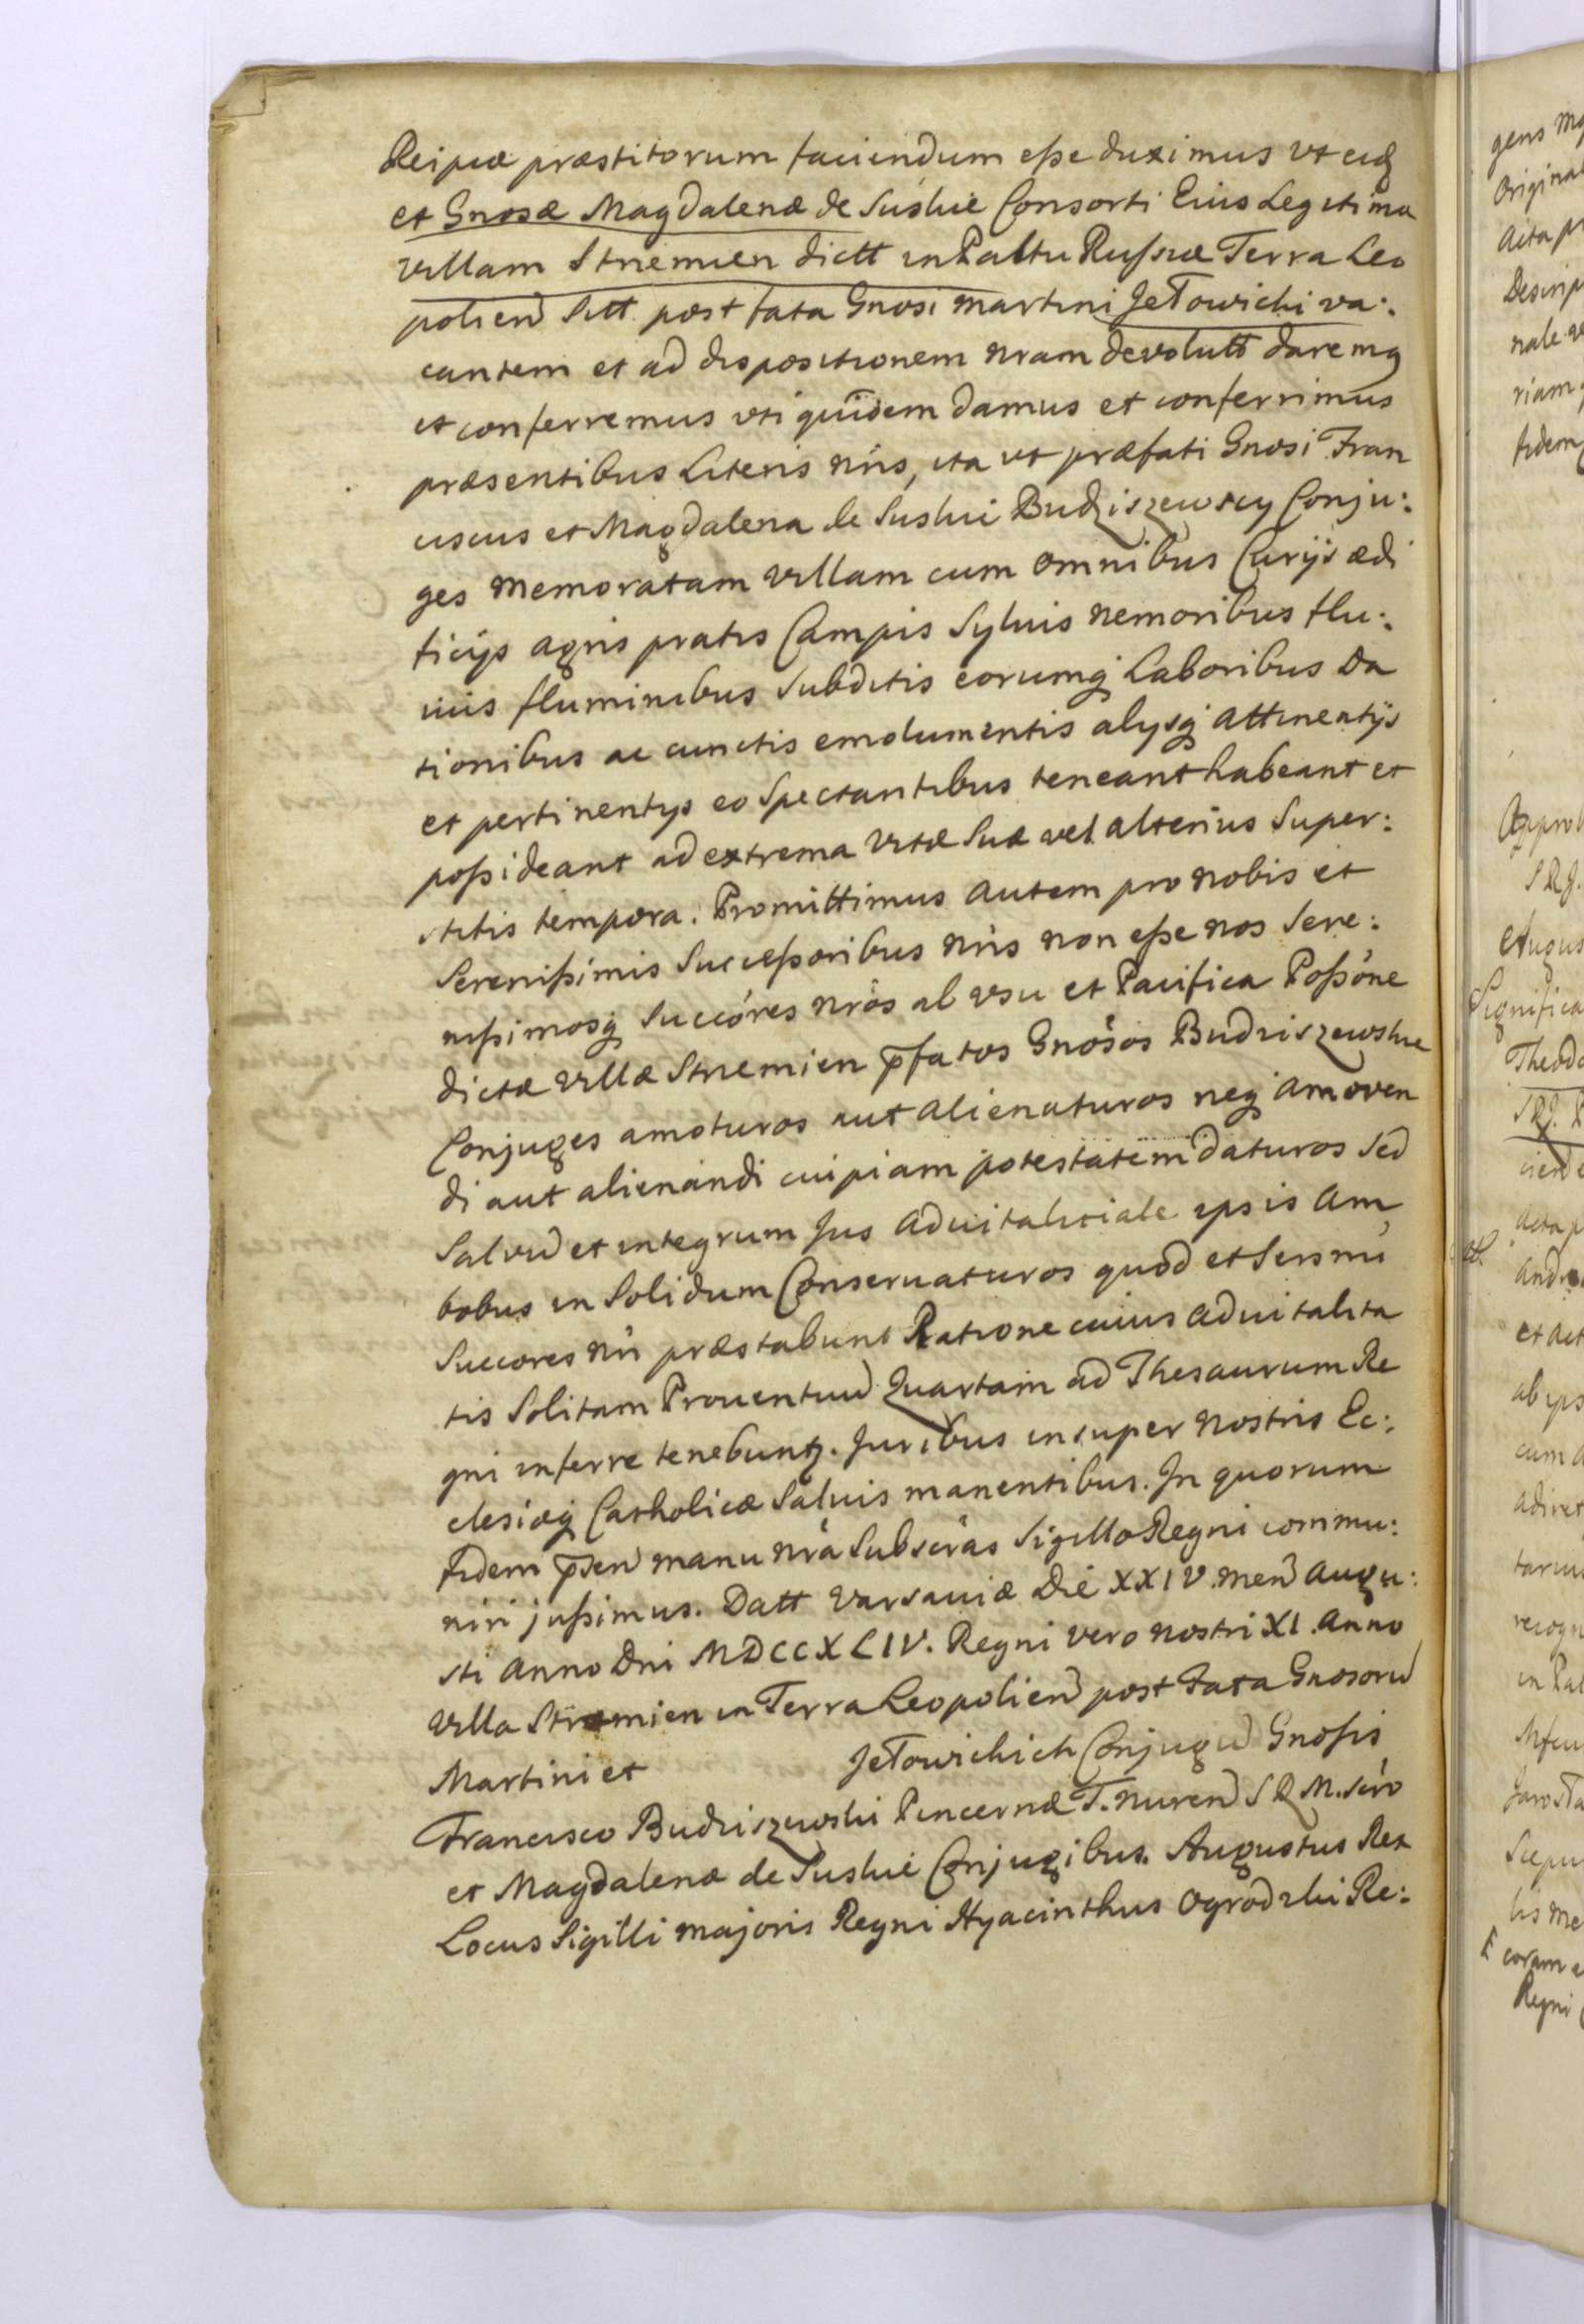 Reipcæ præstitorum faciendum eſse duximus vt eidę
et Gnosæ Magdalenæ de Suskie Consorti Eius Legitimæ
villam Strzemien dictt in Palttu Ruſsiæ Terra Leo
polien Sitt. post fata Gnosi Martini JeTowicki va:
cantem et ad dispositionem nram devolutt daremq
et conferremus vti quidem damus et conferrimus
præsentibus Literis nris, ita ut præfati Gnosi Fran
ciscus et Magdalena de Suskie Budziszewscy Conju:
ges memoratam villam cum omnibus Curijs ædi
ficijs agris pratis Campis Syluis nemoribus flu:
uiis fluminibus Subditis eorumq Laboribus Da
tionibus ac cunctis emolumentis alijsq attinentijs
et pertinentijs eo Spectantibus teneant habeant et
poſsideant ad extrema vitæ Suæ vel alterius Super:
stitis tempora. Promittimus autem pro nobis et
Sereniſsimis Succeſsoribus nris non eſse nos Sere:
niſsimosq Succores nros ab vsu et Pacifica Poſsone
dictæ villæ Strzemien pfatos Gnosos Budziszewskie
Conjuges amoturos aut alienaturos neq amoven
di aut alienandi cuipiam potestatem daturos Sed
Salvu et integrum Jus aduitalitiale ipsis Am
bobus in Solidum Conseruaturos quod et Sersmi
Succores nri præstabunt Ratione cuius aduitalita
tis Solitam Prouentuu Quartam ad Thesaurum Re
gni inferre tenebuntz. Juribus insuper nostris Ec:
clesiæq Catholicæ Saluis manentibus. In quorum
fidem psen manu nra Subscras Sigillo Regni commu:
niri juſsimus. Datt Varsauiæ Die XXIV. men Augu:
sti Anno Dni MDCCXLIV. Regni vero nostri XI. Anno
villa Strzemien in Terra Leopolien post Fata Gnosoru
Martini et JeTowickich Conjugu Gnosis
Francisco Budziszewski Pincernæ T. nuren S R M. Scro
et Magdalenæ de Suskie Conjugibus. Augustus Rex
Locus Sigilli majoris Regni Hyacinthus Ogrodzki Re: